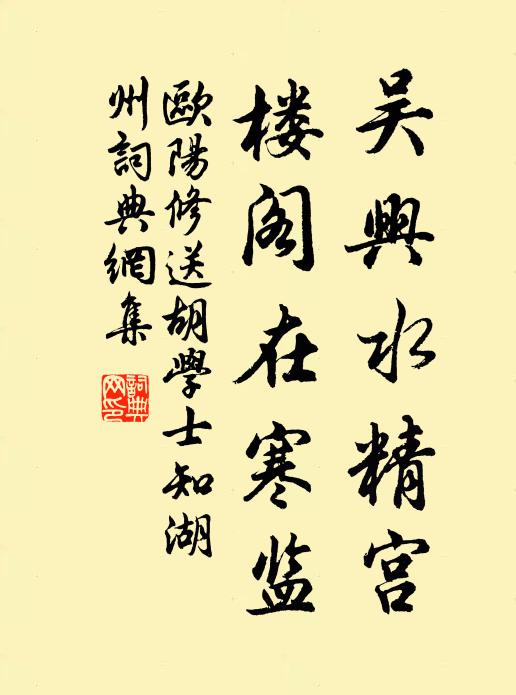 吴興水精宫
楼阁在寒监
歐陽修送胡學士知湖
州詞典網集
詞典网印